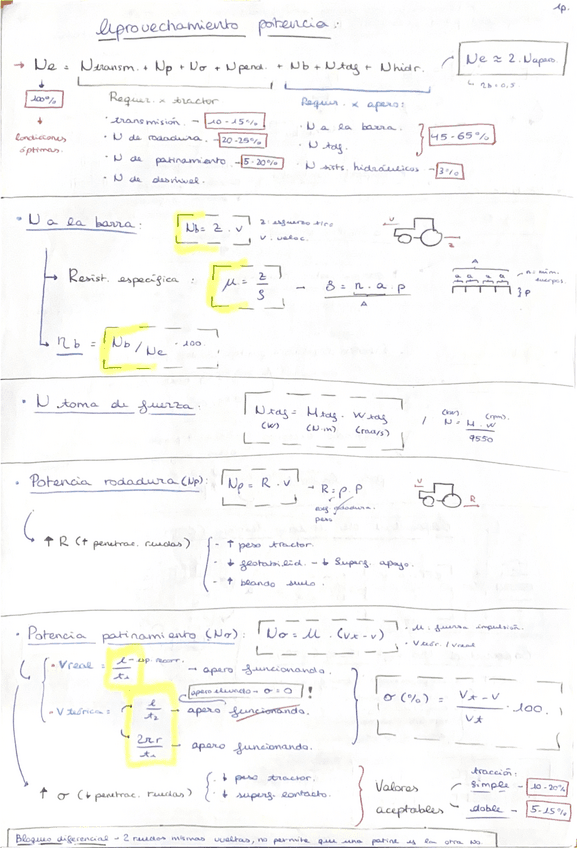 1p.
Aprovechamiento potencia:
→ Ne = Ntransm. + Np + Nσ + Npend. + Nb + Ntdf + Nhidr.
Ne ≈ 2. Napero.
ηb = 0,5
100%
condiciones óptimas.
Requer. x tractor
· transmisión. - 10-15%
· N de rodadura. - 20-25%
· N de patinamiento. - 5-20%
· N de desnivel.
Requer. x apero:
· N a la barra.
· N tdf.
45-65%
· N sists. hidráulicos - 3%
· N a la barra:
Nb = Z . v
Z. esfuerzo tiro
V. veloc.
v
Z
→ Resist. específica:
μ = Z/S
- S = n . a . p
A
A
a a a a
n = núm. cuerpos.
p
→ ηb = Nb/Ne · 100.
· N toma de fuerza:
Ntdf = Mtdf . Wtdf
(kW) (N.m) (rad/s)
/ (kW) N = M . W (rpm) / 9550
· Potencia rodadura (Np):
Np = R . v
→ R = ρ P
peso
v
R
↑ R (↑ penetrac. ruedas)
- ↑ peso tractor.
- ↓ flotabilid. - ↓ superf. apoyo.
- ↑ blando suelo.
· Potencia patinamiento (Nσ):
Nσ = μ . (Vt - v)
· μ. fuerza impulsión.
· Vteór. / Vreal
· Vreal = l/t1 - esp. recorr. → apero funcionando.
apero elevado → σ = 0 !
· Vteórica = l/t2 → apero funcionando.
2πr/t1 → apero funcionando.
σ (%) = Vt - V / Vt · 100.
↑ σ (↓ penetrac. ruedas)
· ↓ peso tractor.
· ↓ superf. contacto.
Valores aceptables
tracción:
simple - 10-20%
doble - 5-15%
Bloqueo diferencial - 2 ruedas mismas vueltas, no permite que una patine y la otra no.